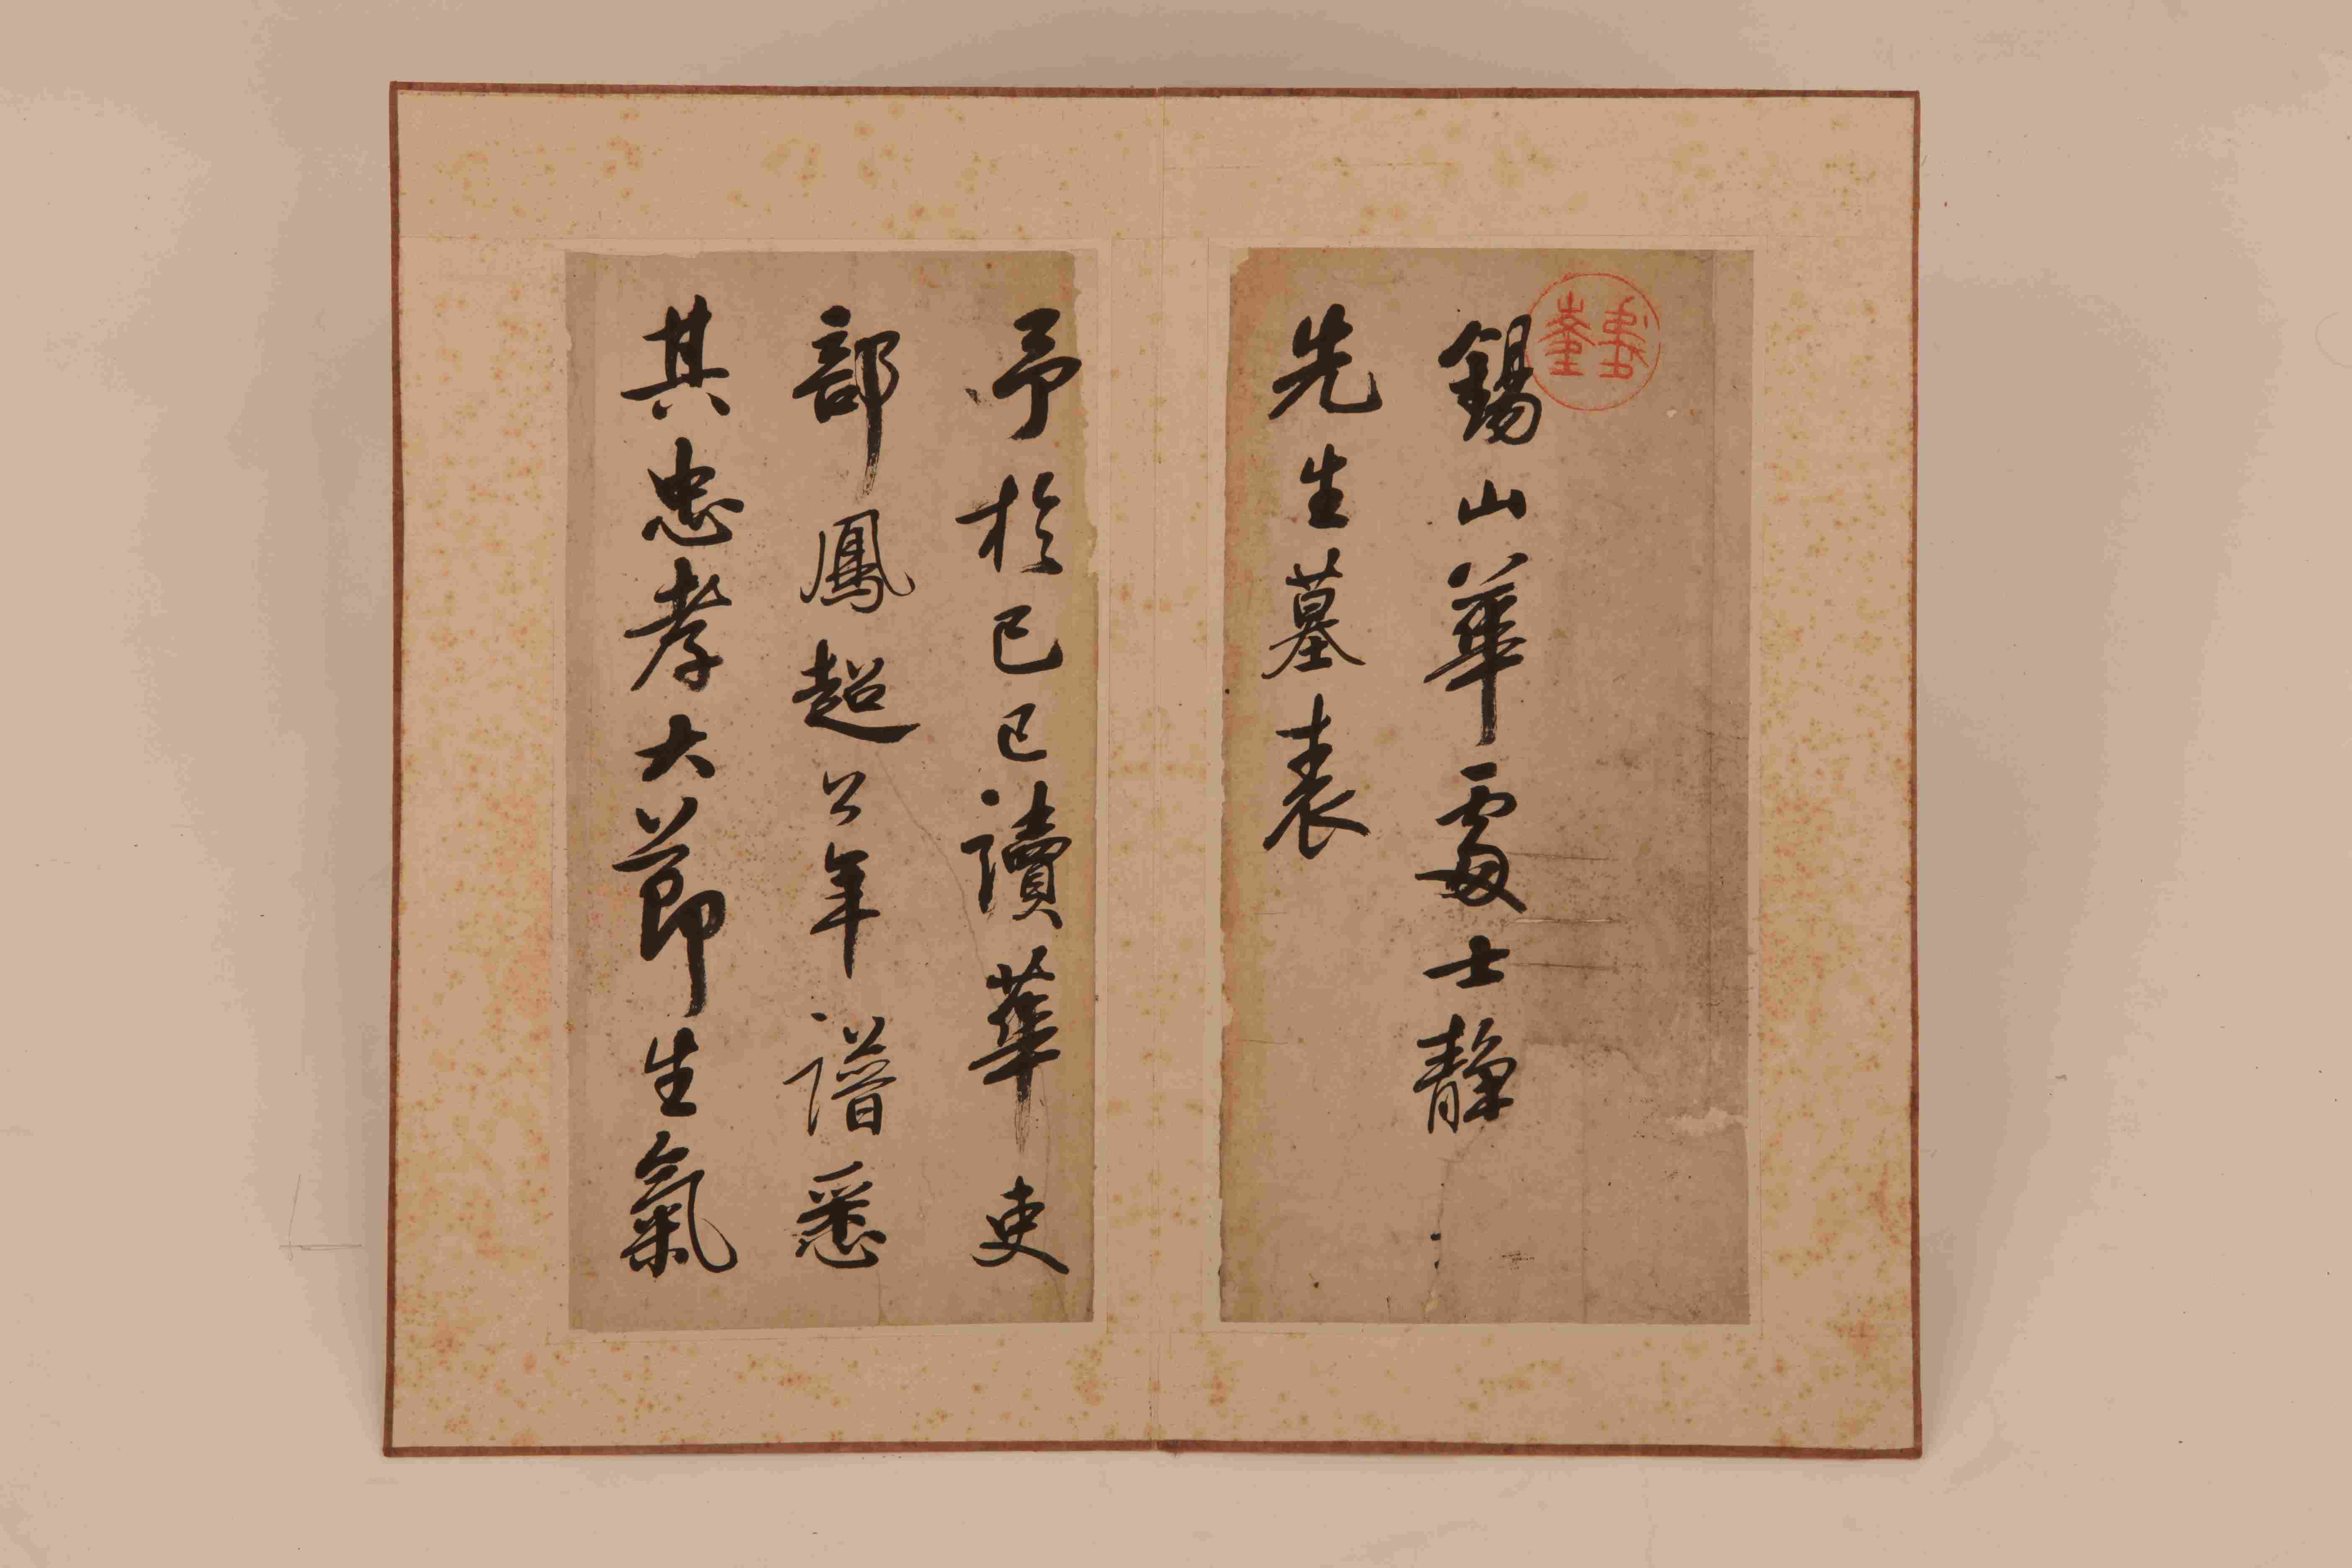 錫山華處士靜
先生墓表
予於己巳讀華吏
部鳳超公年譜悉
其忠孝大節生氣